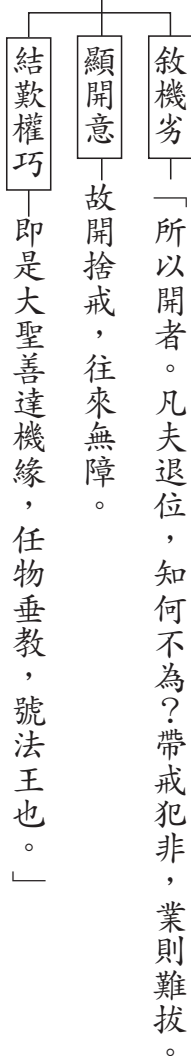 敘機劣「所以開者。凡夫退位，知何不為？帶戒犯非，業則難拔。
顯開意 故開捨戒，往來無障。
結歎權巧 即是大聖善達機緣，任物垂教，號法王也。」